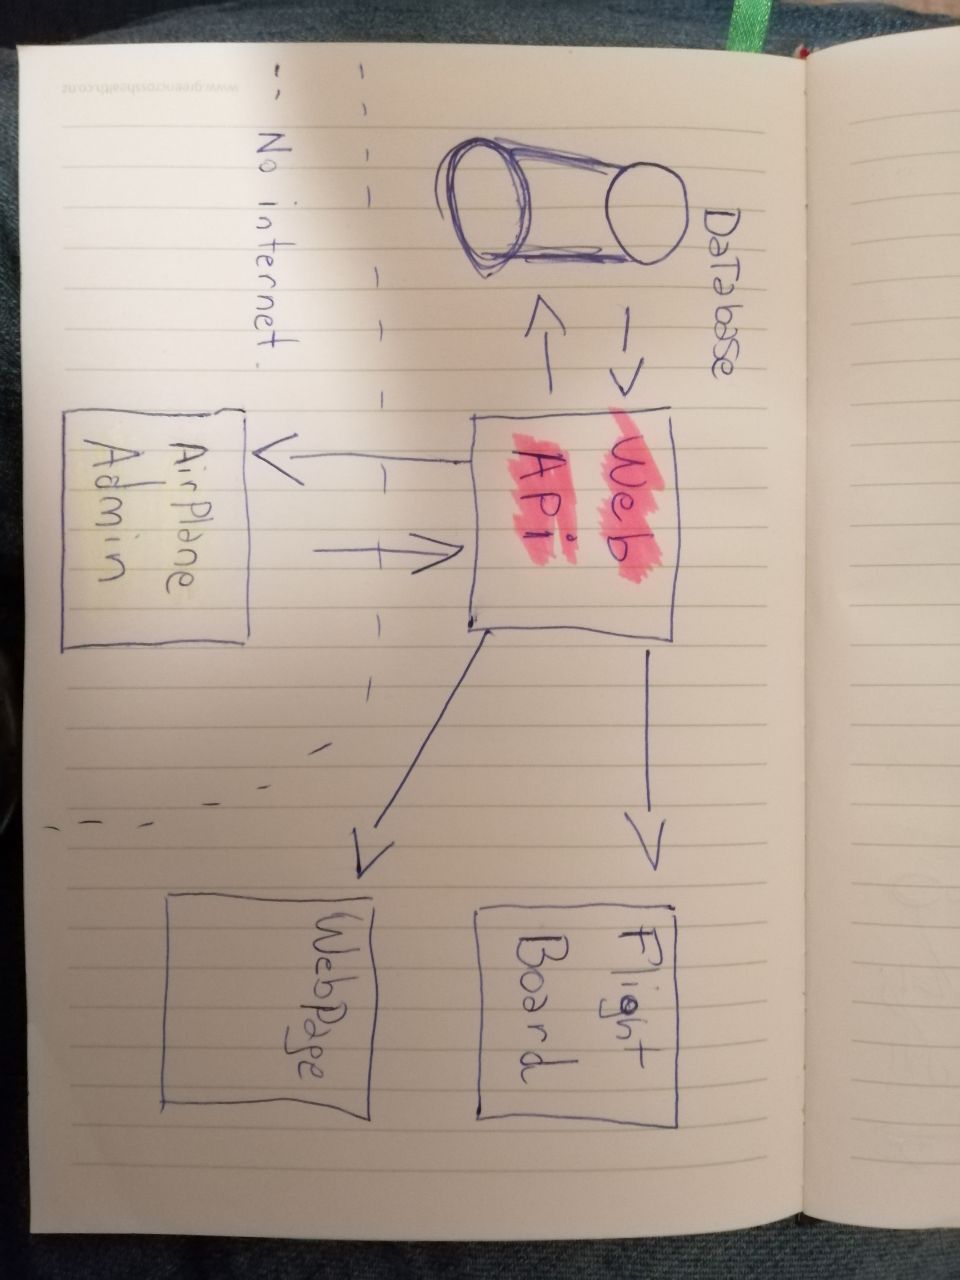 Database
Web
APi
Flight
Board
WebPage
-- No internet.
AirPlane
Admin
www.greencrosshealth.co.nz